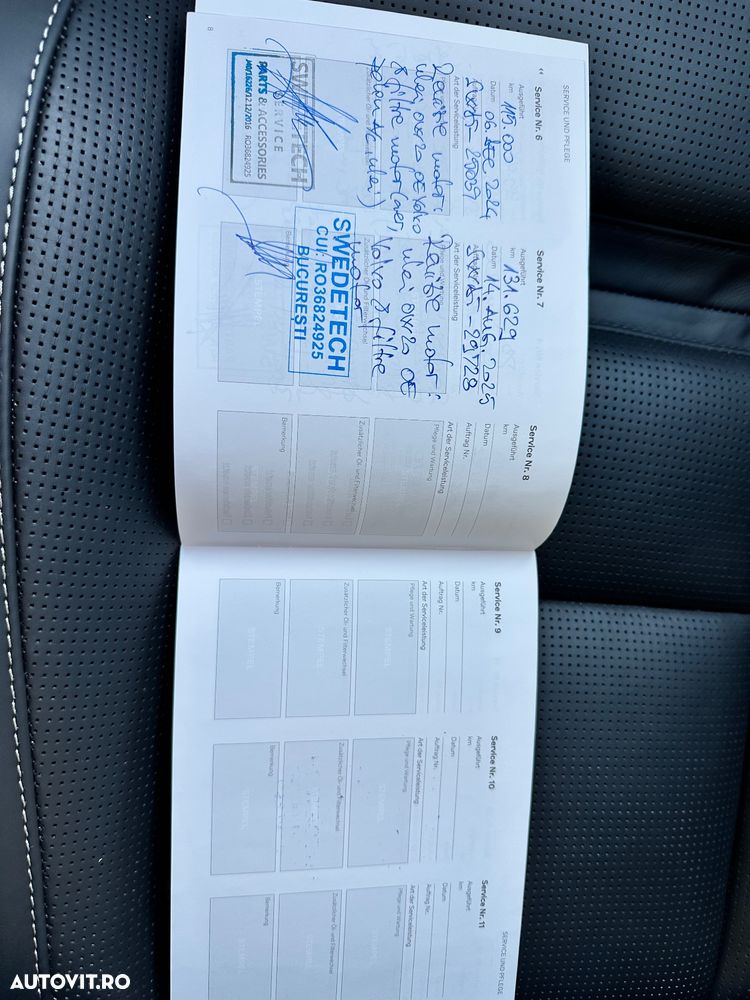 SERVICE UND PFLEGE
Service Nr. 6
Ausgeführt
km 115.000
Datum 06. Dec 2024
Art der Serviceleistung
Revizie motor:
ulei 0W20
8 filtre motor (aer,
SWEDETECH
SERVICE
PARTS & ACCESSORIES
J40/16226/12.12.2016 RO36824925
8
Service Nr. 7
Ausgeführt
km 131.629
Datum 14. Aug. 2025
Art der Serviceleistung
Pflege und Wartung
Revizie motor:
ulei 0W20 OE
Volvo & filtre
motor
Zusätzlicher Öl- und Filterwechsel
SWEDETECH
CUI: RO36824925
BUCURESTI
Service Nr. 8
Ausgeführt
km
Datum
Auftrag Nr.
Art der Serviceleistung
Pflege und Wartung
Zusätzlicher Öl- und Filterwechsel
Bemerkung
Service Nr. 9
Ausgeführt
km
Datum
Auftrag Nr.
Art der Serviceleistung
Pflege und Wartung
STEMPEL
Zusätzlicher Öl- und Filterwechsel
STEMPEL
Bemerkung
STEMPEL
Service Nr. 10
Ausgeführt
km
Datum
Auftrag Nr.
Art der Serviceleistung
Pflege und Wartung
STEMPEL
Zusätzlicher Öl- und Filterwechsel
Bemerkung
STEMPEL
Service Nr. 11
Ausgeführt
km
Datum
Auftrag Nr.
Art der Serviceleistung
Pflege und Wartung
STEMPEL
Zusätzlicher Öl- und Filterwechsel
STEMPEL
Bemerkung
SERVICE UND PFLEGE
AUTOVIT.RO